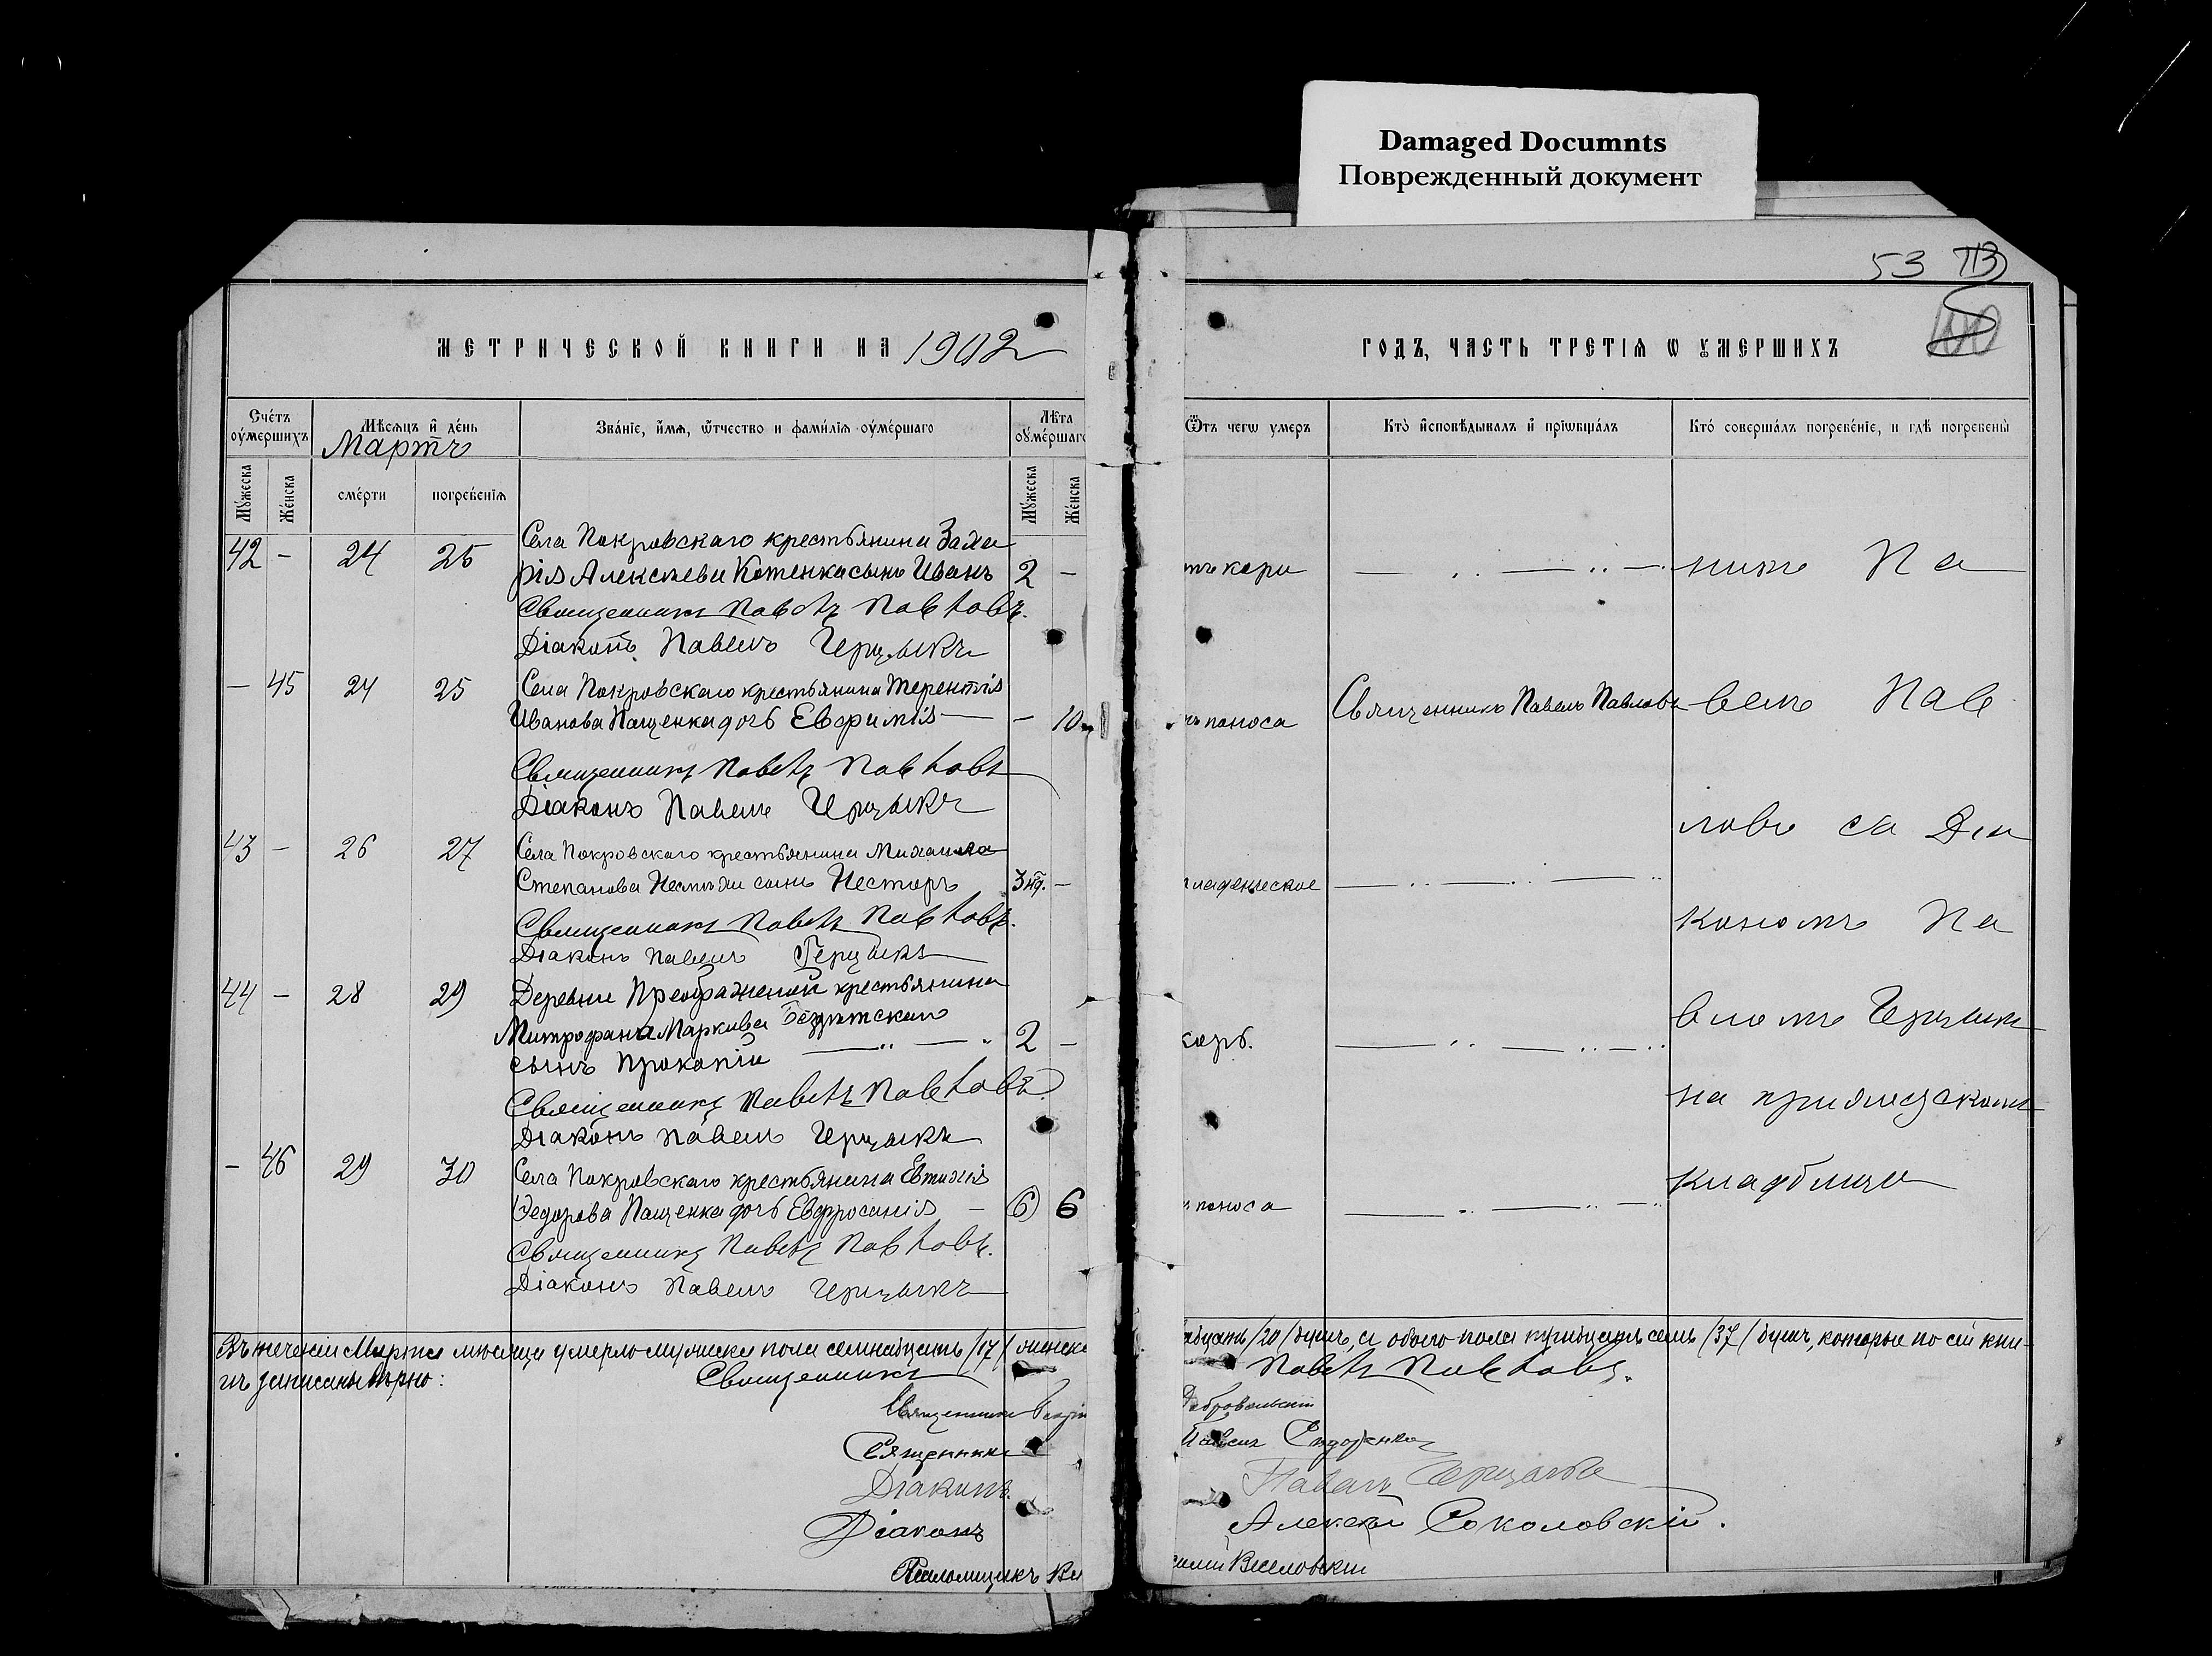 Damaged Documnts
Поврежденный документ
53
МЕТРИЧЕСКОЙ КНИГИ НА 1902
Счетъ оумершихъ
Мѣсяцъ и день
Мартъ
Званіе, имя, ѿчество и фамилія оумершаго
Лѣта оумершаго
Мужеска
Женска
смерти
погребенія
Мужеска
Женска
42 — 24 25 Села Покровскаго крестьянина Заха
рія Алексѣева Котенка сынъ Иванъ 2 —
Священникъ Павелъ Павловъ.
Діаконъ Павелъ Герцыкъ
— 45 24 25 Села Покровскаго крестьянина Терентія
Иванова Пащенка дочь Евфимія — — 10
Священникъ Павелъ Павловъ
Діаконъ Павелъ Герцыкъ
43 — 26 27 Села Покровскаго крестьянина Михаила
Степанова сынъ Несторъ —
Священникъ Павелъ Павловъ.
Діаконъ Павелъ Герцыкъ
44 — 28 29 Деревни Преображенной крестьянина
Митрофана Маркова
сынъ Прокопій 2 —
Священникъ Павелъ Павловъ
Діаконъ Павелъ Герцыкъ
— 46 29 30 Села Покровскаго крестьянина Евтихія
Федорова Пащенка дочь Евфросинія — 6 6
Священникъ Павелъ Павловъ.
Діаконъ Павелъ Герцыкъ
Въ теченіи Марта мѣсяца умерло мужеска пола семнадцать /17/ женска
гѣ записаны вѣрно:
Священникъ
Священникъ
Священникъ
Діаконъ
Діаконъ
Псаломщикъ Ва
ГОДЪ, ЧАСТЬ ТРЕТІЯ Ѡ УМЕРШИХЪ
Ѿтъ чегω умеръ
Кто исповѣдывалъ и пріωбщалъ
Кто совершалъ погребеніе, и гдѣ погребены
тъ кори
поноса
Священникъ Павелъ Павловъ
младенческое
корь.
поноса
Па
велъ Пав
ловъ съ Діа
кономъ Па
вломъ Герцыкъ
на приходскомъ
кладбищѣ
дцать /20/ душъ, а обоего пола тридцать семь /37/ душъ, которые по сей кни-
Павелъ Павловъ.
Добровольскій
Павелъ Герцыкъ
Алексѣй Соколовскій.
силій Веселовскій